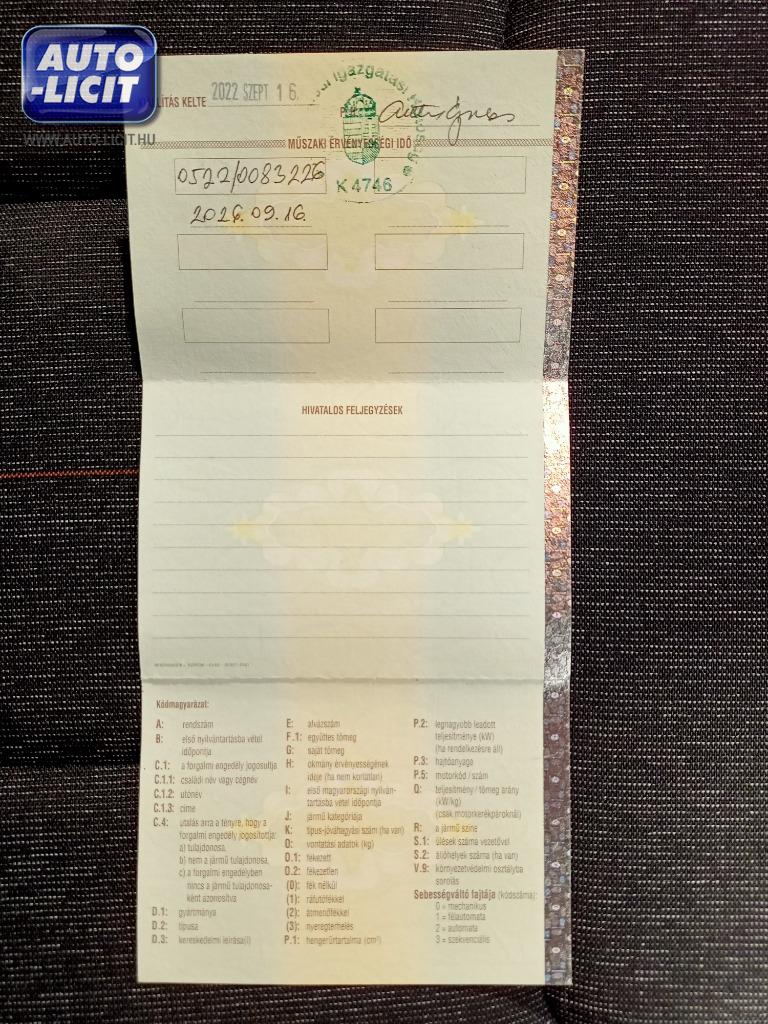 AUTO
-LICIT
WWW.AUTO-LICIT.HU
KELTE 2022 SZEPT 16.
MŰSZAKI ÉRVÉNYESSÉGI IDŐ
0522/0083226
K 4746
2026.09.16.
HIVATALOS FELJEGYZÉSEK
Kódmagyarázat:
A: rendszám
B: első nyilvántartásba vétel
időpontja
C.1: a forgalmi engedély jogosultja
C.1.1: családi név vagy cégnév
C.1.2: utónév
C.1.3: címe
C.4: utalás arra a tényre, hogy a
forgalmi engedély jogosítottja:
a) tulajdonosa,
b) nem a jármű tulajdonosa,
c) a forgalmi engedélyben
nincs a jármű tulajdonosa-
ként azonosítva
D.1: gyártmánya
D.2: típusa
D.3: kereskedelmi leírása(i)
E: alvázszám
F.1: együttes tömeg
G: saját tömeg
H: okmány érvényességének
ideje (ha nem korlátlan)
I: első magyarországi nyilván-
tartásba vétel időpontja
J: jármű kategóriája
K: típus-jóváhagyási szám (ha van)
O: vontatási adatok (kg)
O.1: fékezett
O.2: fékezetlen
(0): fék nélkül
(1): ráfutófékkel
(2): átmenőfékkel
(3): nyeregterhelés
P.1: hengerűrtartalma (cm³)
P.2: legnagyobb leadott
teljesítménye (kW)
(ha rendelkezésre áll)
P.3: hajtóanyaga
P.5: motorkód / szám
Q: teljesítmény / tömeg arány
(kW/kg)
(csak motorkerékpároknál)
R: a jármű színe
S.1: ülések száma vezetővel
S.2: állóhelyek száma (ha van)
V.9: környezetvédelmi osztályba
sorolás
Sebességváltó fajtája (kódszáma):
0 = mechanikus
1 = félautomata
2 = automata
3 = szekvenciális